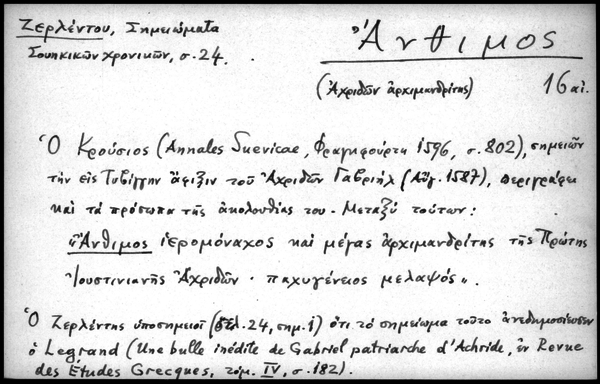 Ζερλέντου, Σημειώματα
Σουηκικῶν χρονικῶν, σ. 24.
Ἄνθιμος
(Ἀχριδῶν ἀρχιμανδρίτης) 16 αἰ.
Ὁ Κρούσιος (Annales Suevicae, Φραγκφούρτη 1596, σ. 802), σημειῶν
τὴν εἰς Τυβίγγην ἄφιξιν τοῦ Ἀχριδῶν Γαβριήλ (Αὔγ. 1587), περιγράφει
καὶ τὰ πρόσωπα τῆς ἀκολουθίας του. Μεταξὺ τούτων:
"Ἄνθιμος ἱερομόναχος καὶ μέγας ἀρχιμανδρίτης τῆς Πρώτης
Ἰουστινιανῆς Ἀχριδῶν· παχυγένειος μελαψός".
Ὁ Ζερλέντης ὑποσημειοῖ (σελ. 24, σημ. 1) ὅτι τὸ σημείωμα τοῦτο ἀνεδημοσίευσεν
ὁ Legrand (Une bulle inédite de Gabriel patriarche d'Achride, ἐν Revue
des Etudes Grecques, τόμ. IV, σ. 182).